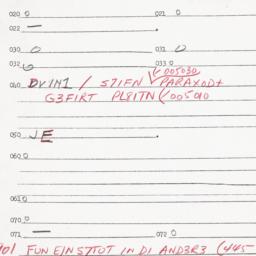 020 0 021 0
022 —
030 0 031 0
032 0 033 0
005030
040 DVIM1 / S7IFN PARAXOD+
G3FIRT PL8ITN (005010
050 JE
060 0
070 0
071 — 072 0
FUN EINSTTOT IN DI AND3R3 (445